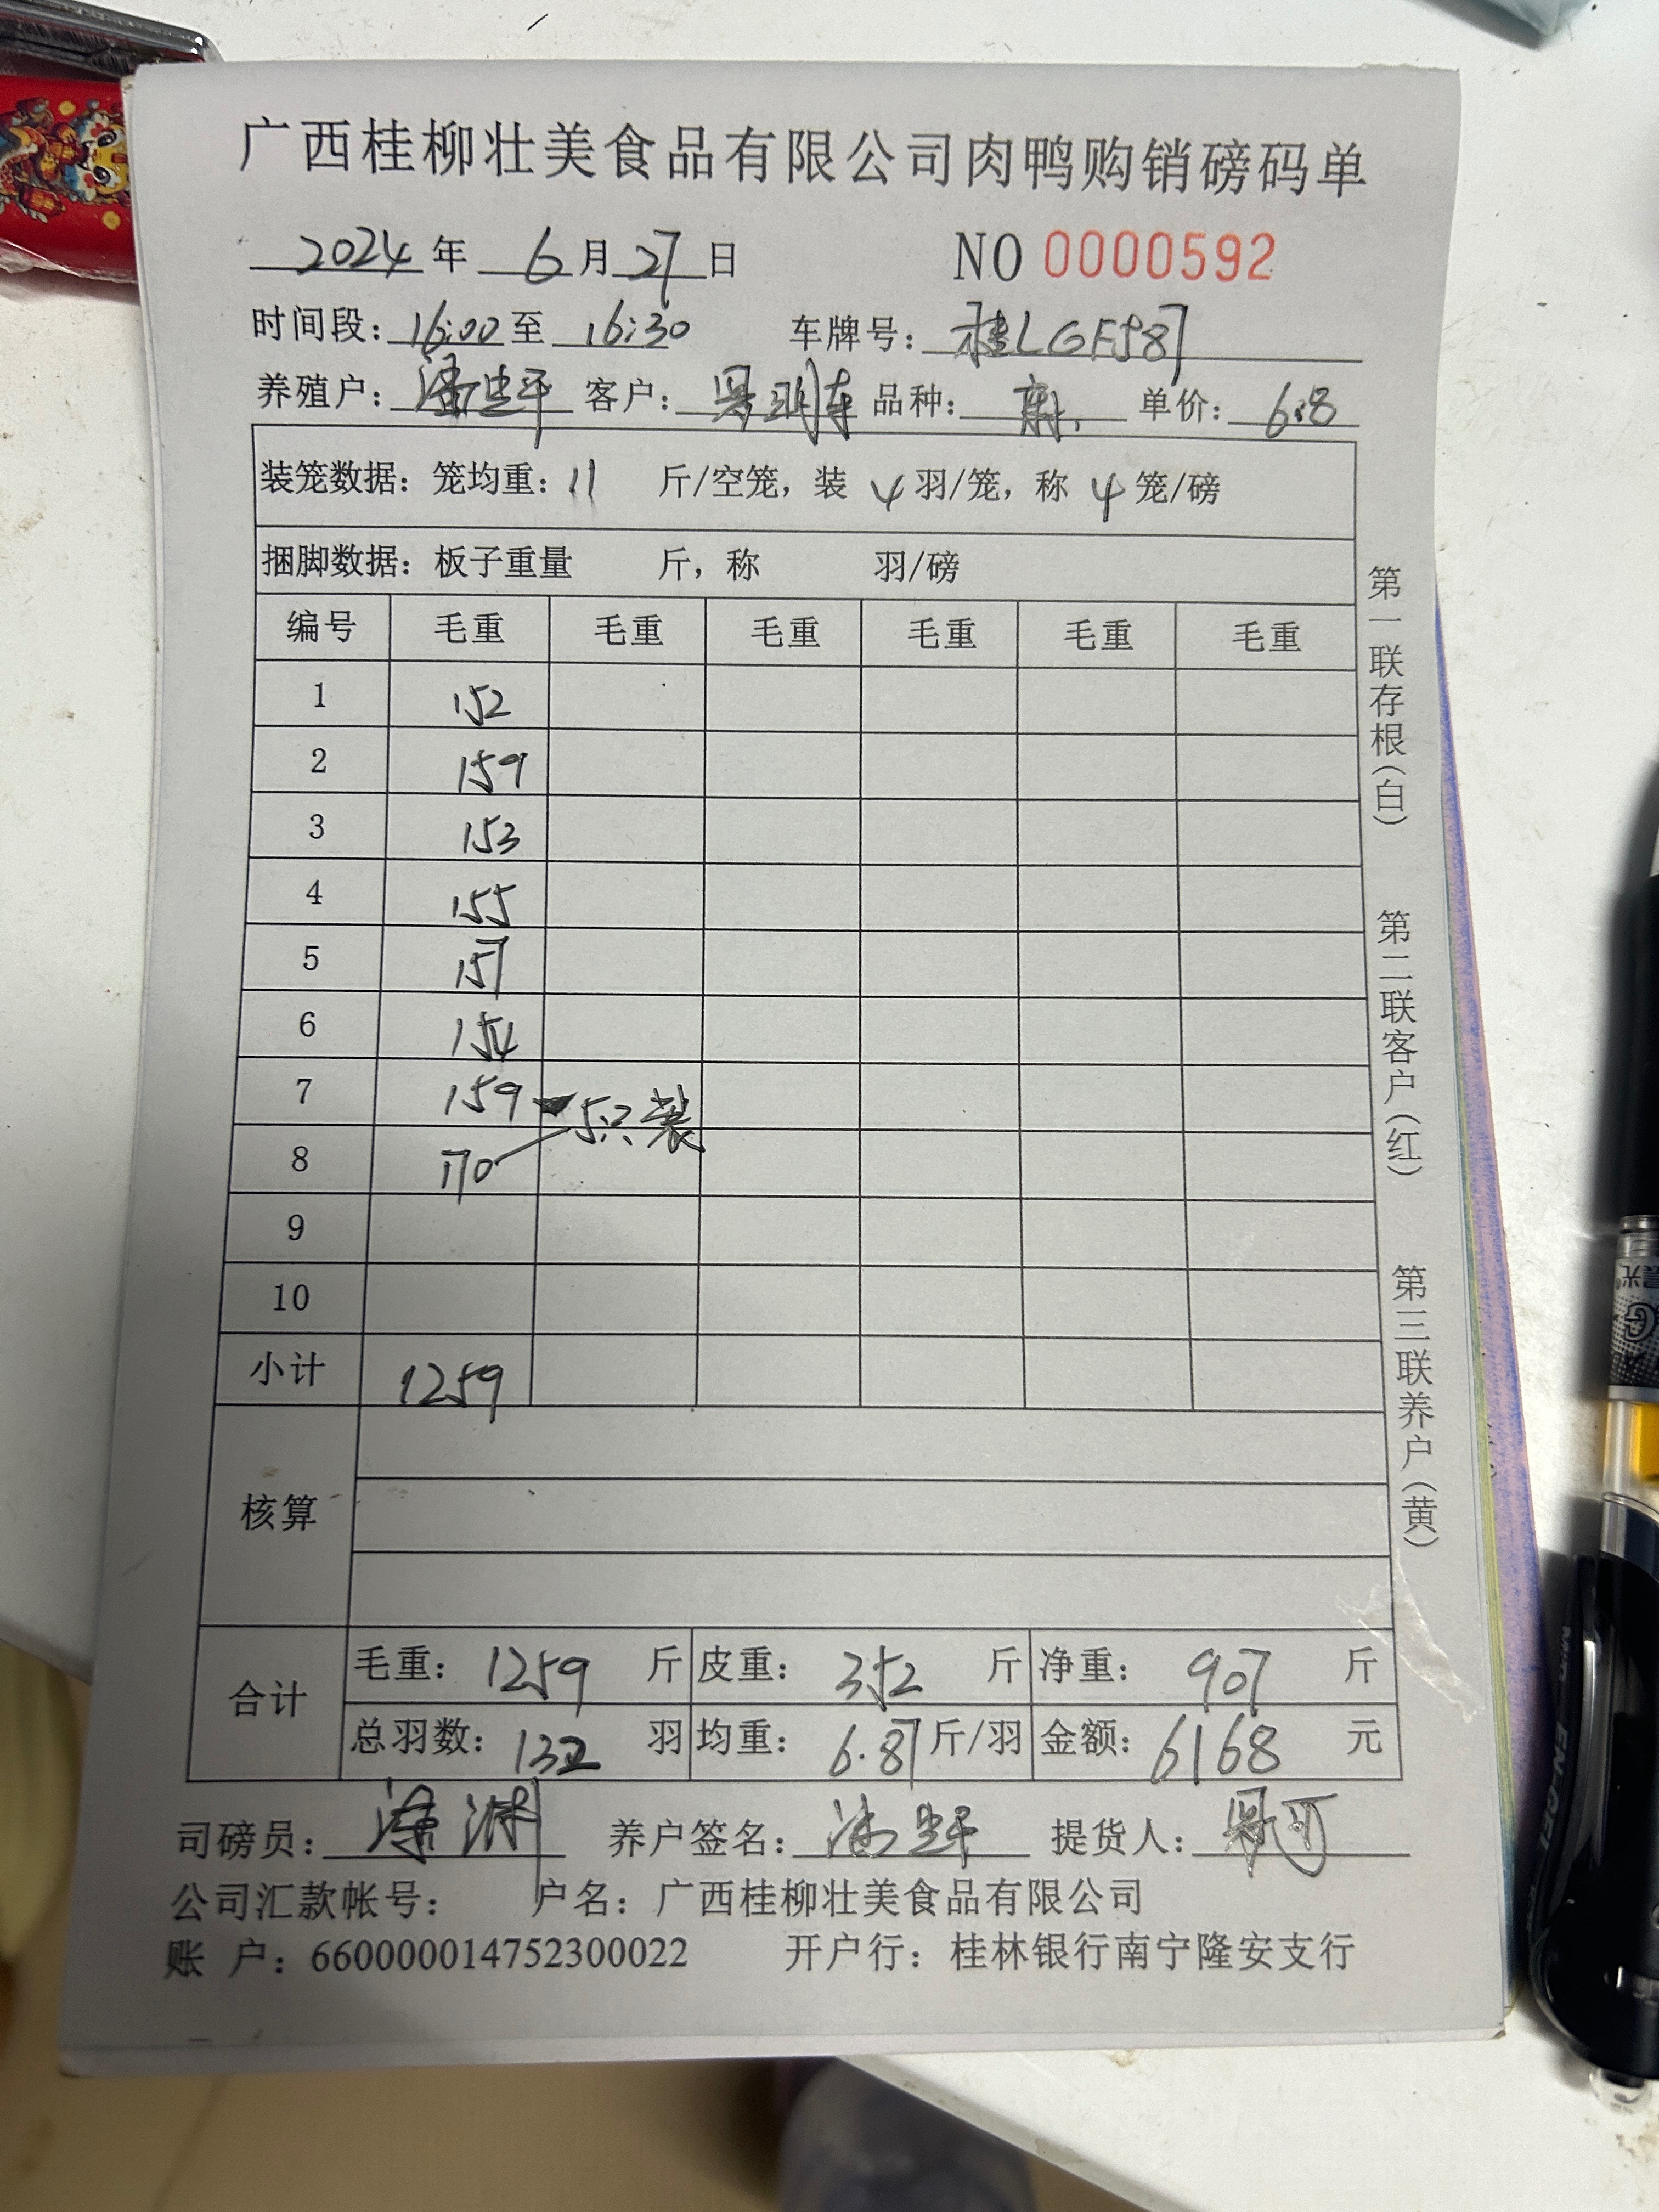 广西桂柳壮美食品有限公司肉鸭购销磅码单
2024 年 6 月 27 日 NO 0000592
时间段: 16:00 至 16:30 车牌号: 桂LGF587
养殖户: 客户: 品种: 单价: 6.8
装笼数据: 笼均重: 11 斤/空笼, 装 4 羽/笼, 称 4 笼/磅
捆脚数据: 板子重量 斤, 称 羽/磅
编号 毛重 毛重 毛重 毛重 毛重 毛重
1 152
2 159
3 153
4 155
5 157
6 154
7 159 5只装
8 170
9
10
小计 1259
核算
合计
毛重: 1259 斤 皮重: 352 斤 净重: 907 斤
总羽数: 132 羽 均重: 6.87 斤/羽 金额: 6168 元
司磅员: 养户签名: 提货人:
公司汇款帐号: 户名: 广西桂柳壮美食品有限公司
账 户: 660000014752300022 开户行: 桂林银行南宁隆安支行
第一联存根(白)
第二联客户(红)
第三联养户(黄)